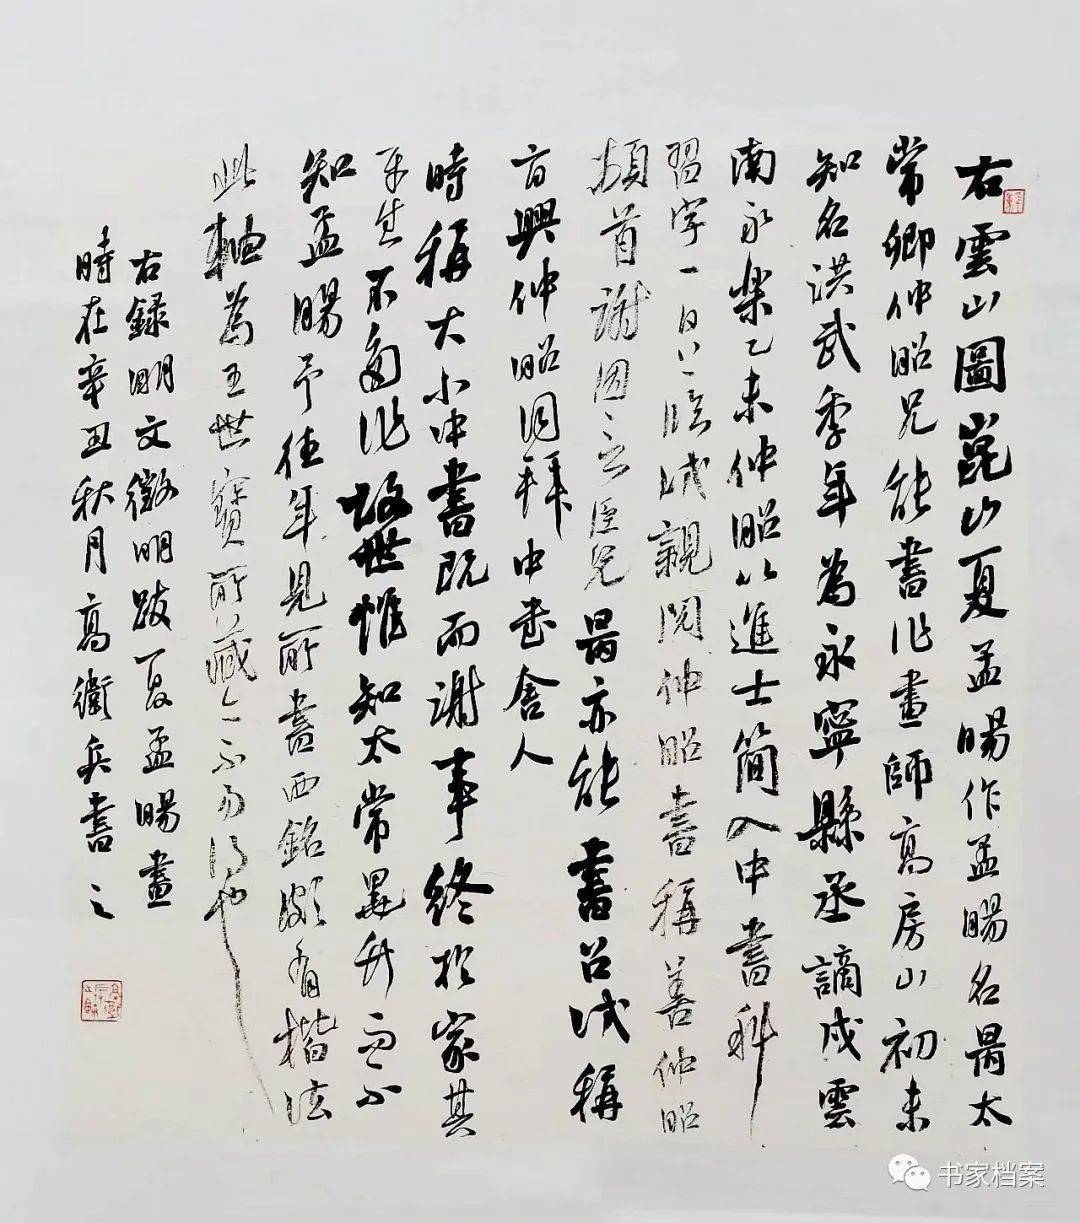 右雲山圖崑山夏孟暘作孟暘名昺太
常卿仲昭兄能書作畫師高房山初未
知名洪武季年為永寧縣丞謫戍雲
南永樂乙未仲昭以進士簡入中書科
習字一日上臨試親閱仲昭書稱善仲昭
頓首謝因言臣兄昺亦能書召試稱
旨與仲昭同拜中書舍人
時稱大小中書既而謝事終於家其
平生不多作故世惟知太常墨竹而不
知孟暘予往年見所書西銘頗有楷法
此軸為王世寶所藏今亦不易得也
右錄明文徵明跋夏孟暘畫
時在辛丑秋月高衛兵書之
书家档案